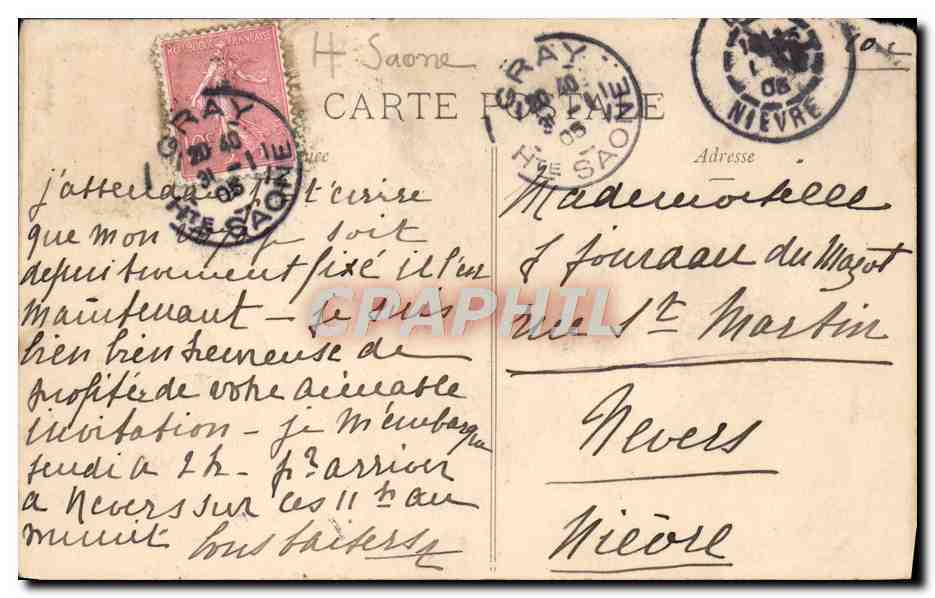 H Saone
REPUBLIQUE FRANÇAISE
GRAY
20 40
31 -1
05
HTE SAONE
GRAY
20 40
31 -1
05
HTE SAONE
05
NIEVRE
10 c
CARTE POSTALE
Adresse
j'attendais t'écrire
que mon soit
fixé il l'est
maintenant – je suis
bien bien heureuse de
profiter de votre aimable
invitation – je m'embarque
jeudi à 2h – pr arriver
a Nevers sur les 11h au
minuit Bons baisers
Mademoiselle
J Jourdan du Mazot
rue St Martin
Nevers
Nièvre
CPAPHIL